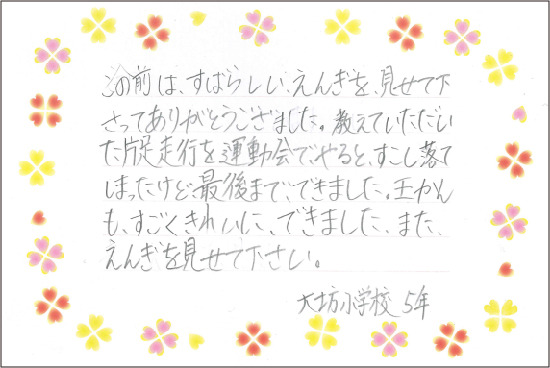 この前は、すばらしい、えんぎを、見せて下
さってありがとうございました。教えていただい
た片足走行を運動会でやると、すこし落て
しまったけど、最後まで、できました。王かん
も、すごくきれいに、できました、また、
えんぎを見せて下さい。
大坊小学校 5年